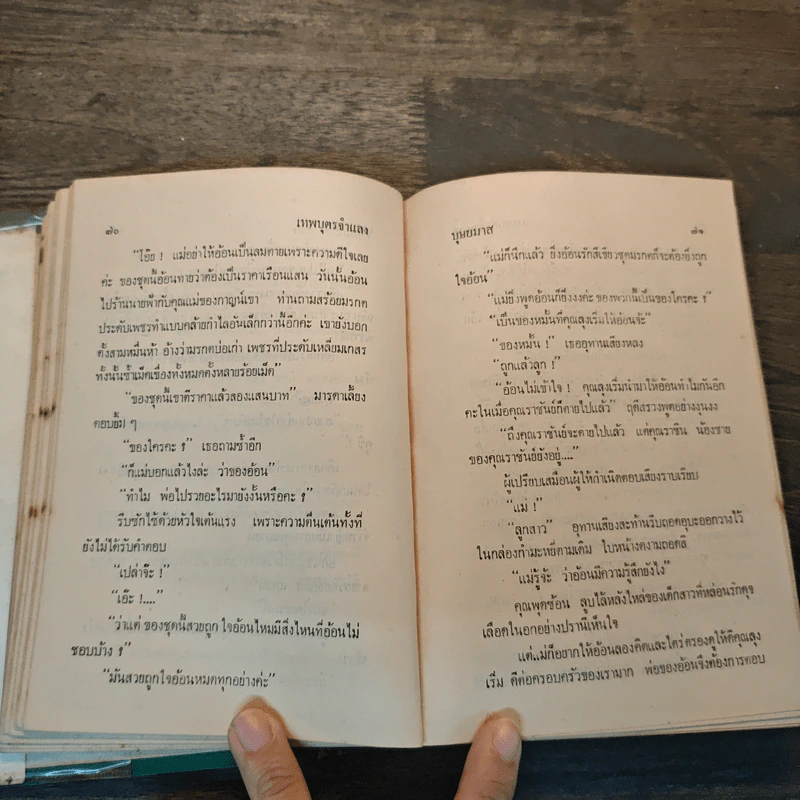 ๘๐ เทพบุตรจำแลง
“โอ๊ย ! แม่อย่าให้อ้อนเป็นลมตายเพราะความดีใจเลย
ค่ะ ของชุดนี้อ้อนทายว่าต้องเป็นราคาเรือนแสน วันนั้นอ้อน
ไปร้านนายฟ้ากับคุณแม่ของกาญน์เขา ท่านถามสร้อยมรกต
ประดับเพชรทำแบบคล้ายกำไลอันเล็กกว่านี้อีกค่ะ เขายังบอก
ตั้งสามหมื่นห้า อ้างว่ามรกตบ่อเก่า เพชรที่ประดับเหลี่ยมเกสร
ทั้งนั้นซ้ำเม็ดเขื่องทั้งหมดตั้งหลายร้อยเม็ด”
“ของชุดนี้เขาตีราคาแล้วสองแสนบาท” มารดาเลี้ยง
ตอบยิ้ม ๆ
“ของใครคะ ?” เธอถามซ้ำอีก
“ก็แม่บอกแล้วไงล่ะ ว่าของอ้อน”
“ทำไม พ่อไปรวยอะไรมายังงั้นหรือคะ ?”
รีบซักไซ้ด้วยหัวใจเต้นแรง เพราะความตื่นเต้นทั้งที่
ยังไม่ได้รับคำตอบ
“เปล่าจ้ะ !”
“เอ๊ะ !....”
“ว่าแต่ ของชุดนี้สวยถูก ใจอ้อนไหมมีสิ่งไหนที่อ้อนไม่
ชอบบ้าง ?”
“มันสวยถูกใจอ้อนหมดทุกอย่างค่ะ”
บุษยมาส ๘๑
“แม่ก็นึกแล้ว ยิ่งอ้อนรักสีเขียวชุดมรกตก็จะต้องยิ่งถูก
ใจอ้อน”
“แม่ยิ่งพูดอ้อนก็ยิ่งงงค่ะ ของพวกนี้เป็นของใครคะ ?”
“เป็นของหมั้นที่คุณลุงเริ่มให้อ้อนจ้ะ”
“ของหมั้น !” เธออุทานเสียงหลง
“ถูกแล้วลูก !”
“อ้อนไม่เข้าใจ ! คุณลุงเริ่มนำมาให้อ้อนทำไมกันอีก
คะในเมื่อคุณราชันย์ก็ตายไปแล้ว” ฤดีสรวงพูดอย่างงุนงง
“ถึงคุณราชันย์จะตายไปแล้ว แต่คุณราชิน น้องชาย
ของคุณราชันย์ยังอยู่....”
ผู้เปรียบเสมือนผู้ให้กำเนิดตอบเสียงราบเรียบ
“แม่ !”
“ลูกสาว” อุทานเสียงสะท้านรีบถอดอุบะออกวางไว้
ในกล่องกำมะหยี่ตามเดิม ใบหน้างดงามถอดสี
“แม่รู้จ้ะ ว่าอ้อนมีความรู้สึกยังไง”
คุณพุดซ้อน ลูบไล้หลังไหล่ของเด็กสาวที่หล่อนรักดุจ
เลือดในอกอย่างปรานีเห็นใจ
แต่แม่ก็อยากให้อ้อนลองคิดและไตร่ตรองดูให้ดีคุณลุง
เริ่ม ดีต่อครอบครัวของเรามาก พ่อของอ้อนจึงต้องการตอบ